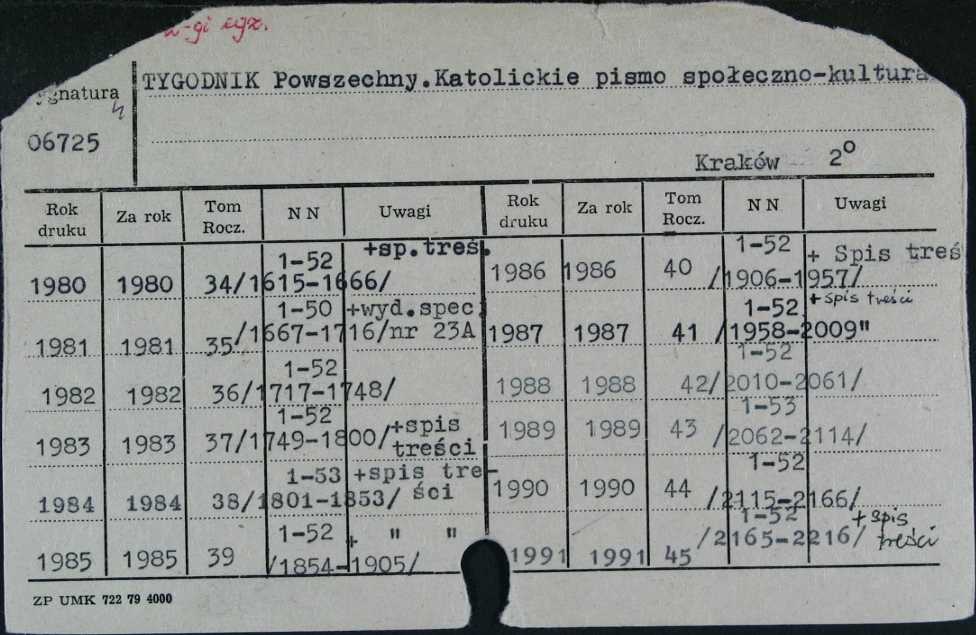 2-gi egz.
TYGODNIK Powszechny.Katolickie pismo społeczno-kultura
ygnatura
06725
Kraków 2°
Rok druku Za rok Tom Rocz. N N Uwagi Rok druku Za rok Tom Rocz. N N Uwagi
1-52 +sp.treś.
1980 1980 34/1615-1666/
1-50 +wyd.spec.
1981 1981 35/1667-1716/nr 23A
1-52
1982 1982 36/1717-1748/
1-52 +spis
1983 1983 37/1749-1800/ treści
1-53 +spis tre-
1984 1984 38/1801-1853/ ści
1-52 + " "
1985 1985 39 /1854-1905/
1-52 + Spis treś
1986 1986 40 /1906-1957/
1-52 + spis treści
1987 1987 41 /1958-2009"
1-52
1988 1988 42/2010-2061/
1-53
1989 1989 43 /2062-2114/
1-52
1990 1990 44 /2115-2166/
1-52 + spis
1991 1991 45 /2165-2216/ treści
ZP UMK 722 79 4000